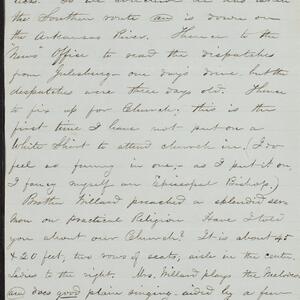 the Southern route and is down on
the Arkansas River. Thence to the
"News" Office to read the dispatches
from Julesburg - one day's drive, but the
despatches were three days old. Thence
to fix up for Church; this is the
first time I have not put on a
White Shirt to attend church in. (I do
feel so funny in one - as I put it on,
I fancy myself an Episcopal Bishop.)
Brother Willard preached a splendid ser-
mon on Practical Religion Have I told
you about our Church? It is about 45
& 20 feet, two rows of seats, aisle in the center,
Ladies to the right. Mrs. Willard plays the Melodeon
and does good plain singing - aided by a few